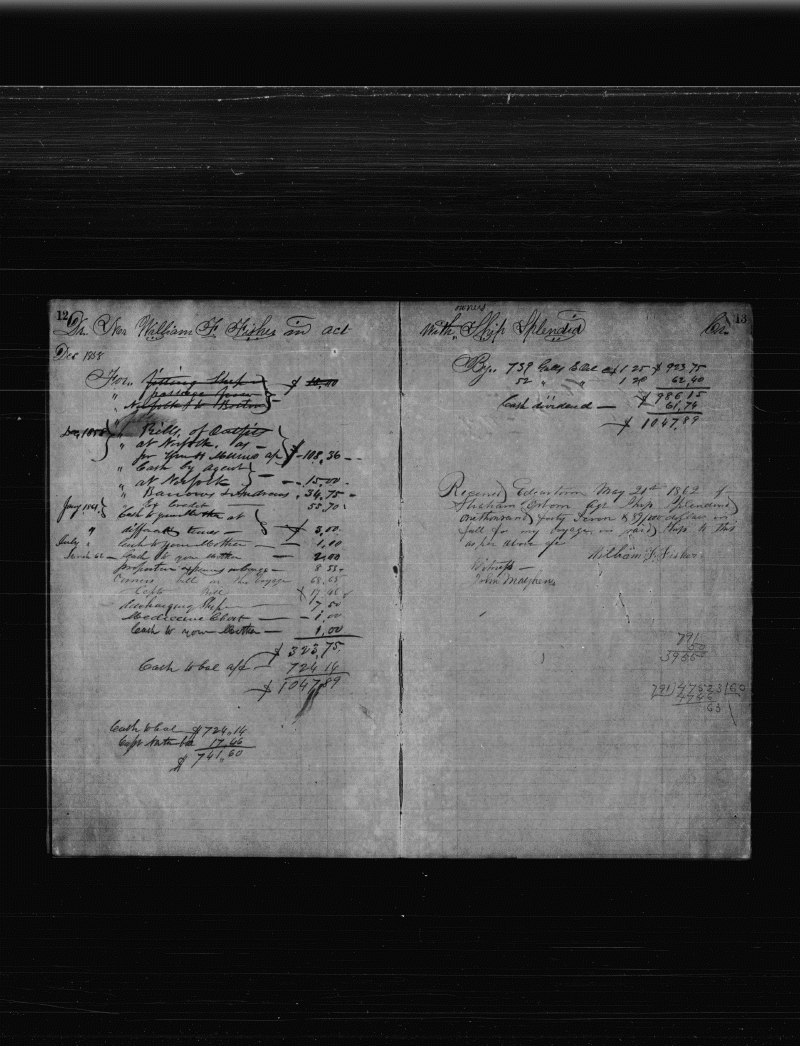 12
Dr. Mr William F. Fisher in act
Dec 1858
For. fitting Ship
" passage from
Norfolk to Boston $ 10,00
Dec, 1858 " Bills of Outfits
at Norfolk. as
pr a/c $ 108,36
" Cash by agent
at Norfolk 15.00
" Barrows 34,75
" 55,70
Jany 1861. Cash to your Mother at
" different times $ 5,00
July " Cash to your Mother 1,00
Cash to your Mother 2,00
proportion expenses 8 55
Owners bill on the Voyage 68,65
Capts Bill $ 17,46
discharging Ship 17,50
Medicine Chest 1,00
Cash to your Mother 1,00
$ 323,75
Cash to bal a/c 724 14
$ 1047 89
Cash to bal $ 724,14
Capt 17,46
$ 741,60
13
owners
With Ship Splendid Cr.
By. 739 Galls @ 1 25 $ 923,75
52 " " 1 20 62,40
$ 986 15
Cash dividend 61,74
$ 1047,89
Received Edgartown May 21st 1862 of
Abraham Osborn Agt Ship Splendid
one thousand forty seven & 89/100 dollars in
full for my voyage in said Ship to this
as per above a/c
William F. Fisher
Witness
John
791
50
39550
791) 47523 (60
4746
63